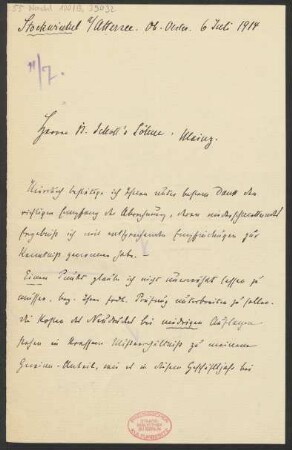 Stockwinkel a/Attersee. Ob.-Oester. 6 Juli 1914
11/7.
Herrn B. Schott's Söhne, Mainz.
Hierdurch bestätige ich Ihnen unter bestem Dank den
richtigen Empfang der Abrechnung, deren
Ergebniß ich mit entsprechenden Empfindungen zur
Kenntniß genommen habe. –
Einen Punkt glaube ich nicht lassen zu
müssen, bez. Ihrer Prüfung unterbreiten zu sollen.
Die Kosten der Neudrucke bei niedrigen Auflagen
stehen in krassem Mißverhältniß zu meinem
Gewinn-Anteil, wie d. d. dieses Geschäftsjahr bei